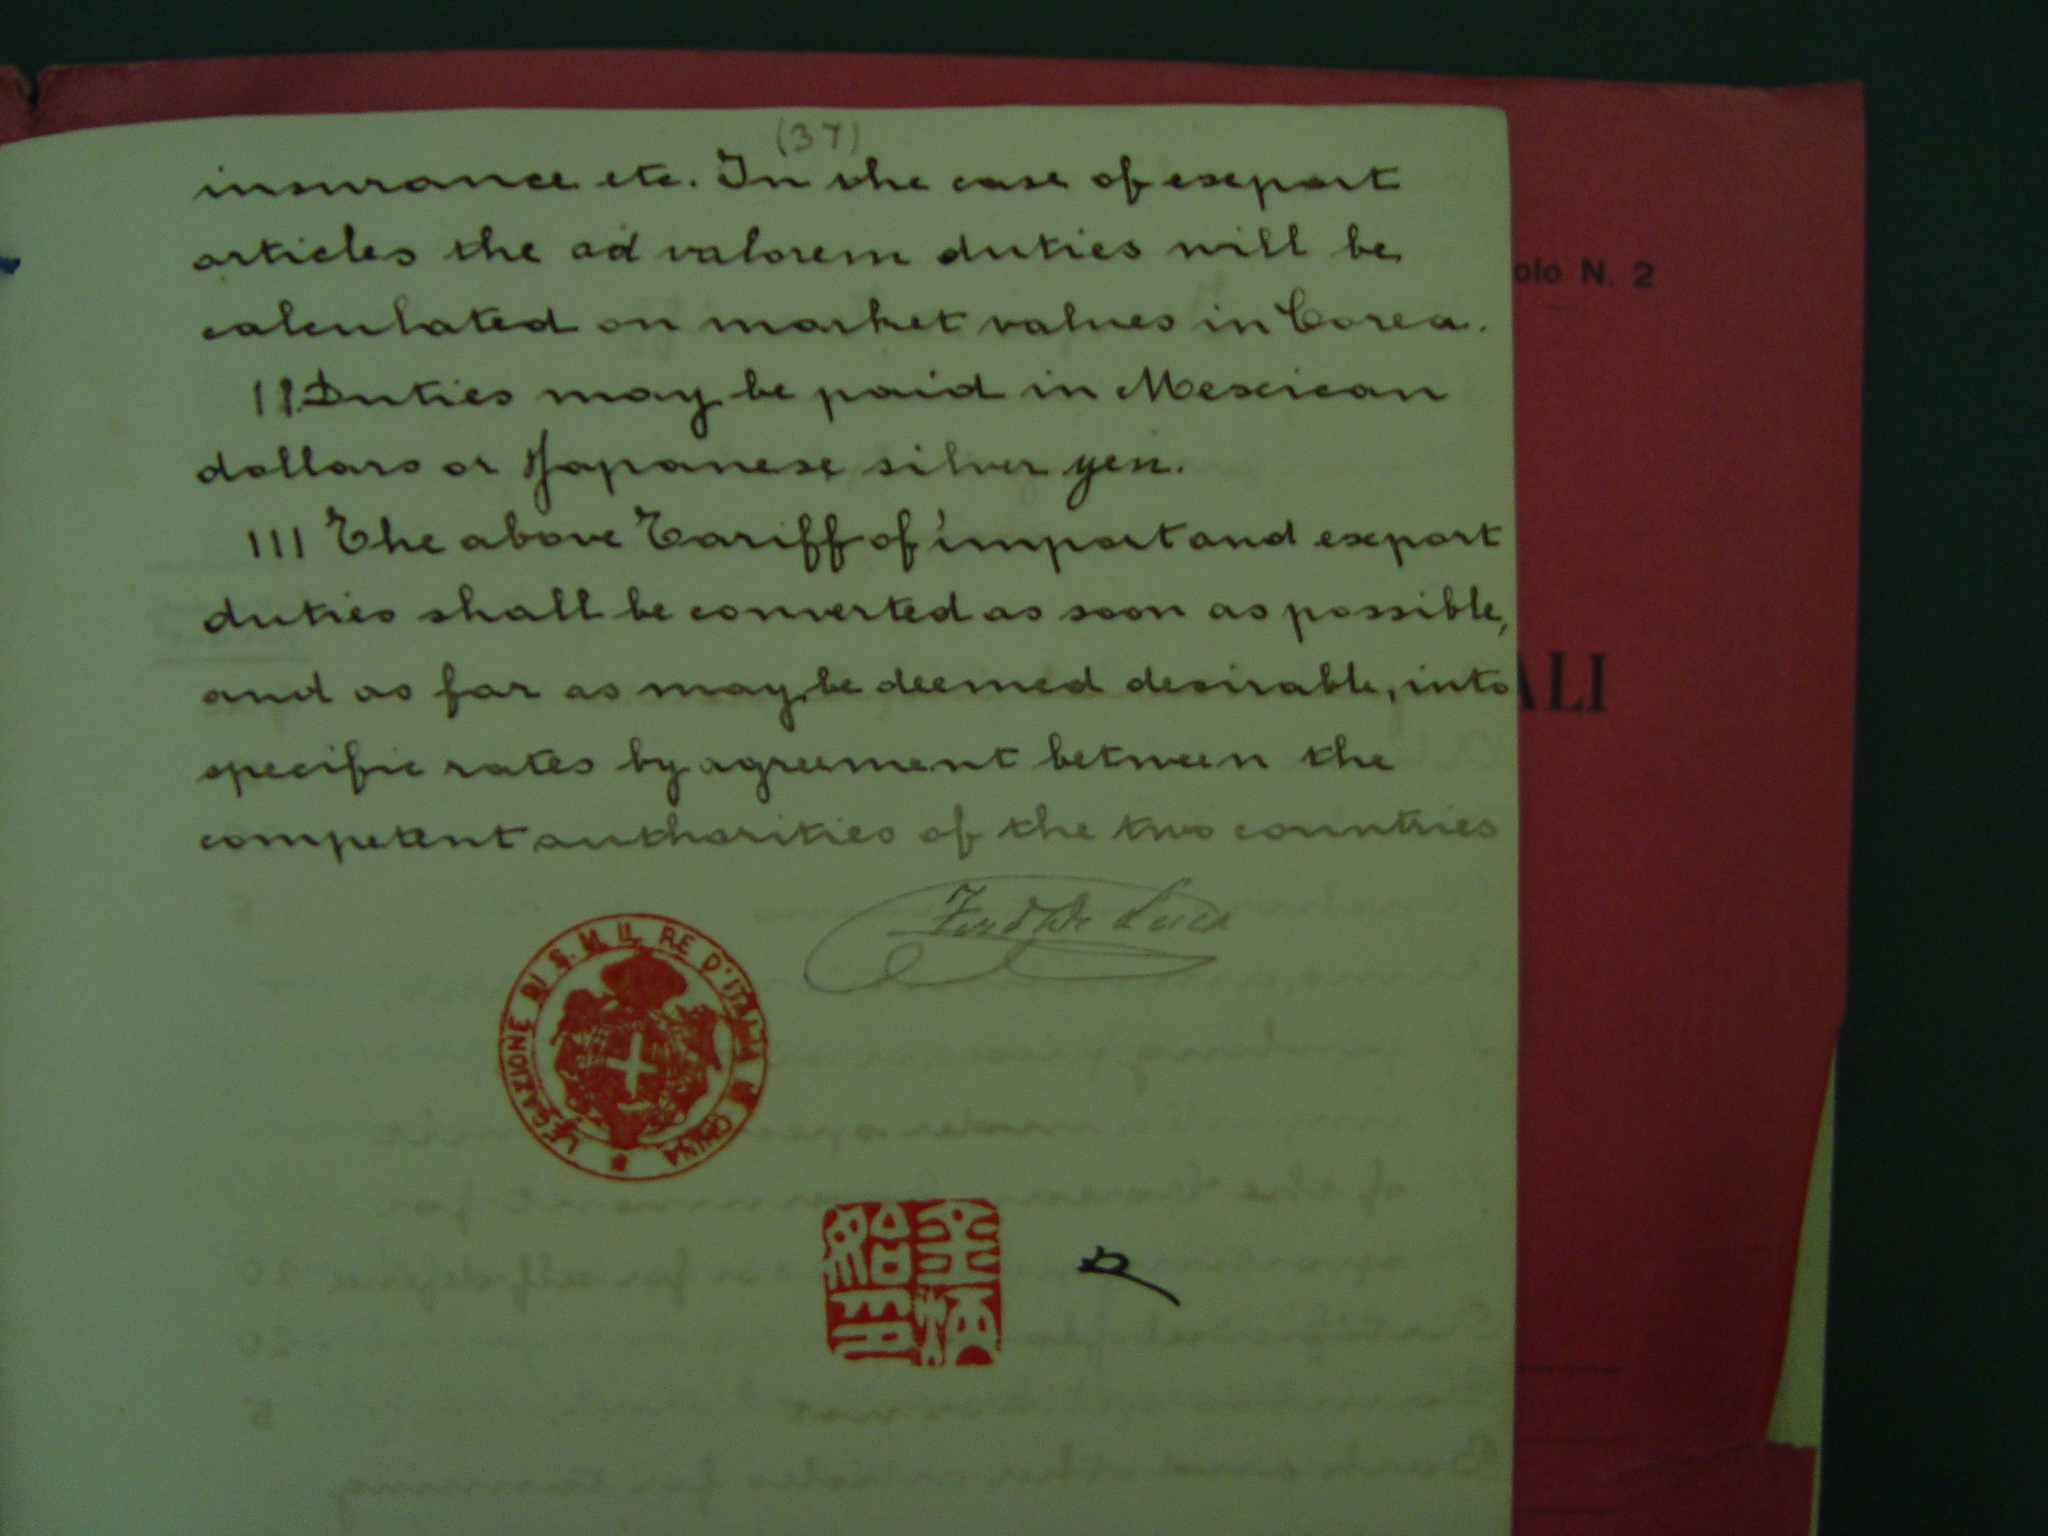 (37)
insurance etc. In the case of export
articles the ad valorem duties will be
calculated on market values in Corea.
II. Duties may be paid in Mexican
dollars or Japanese silver yen.
III The above Tariff of import and export
duties shall be converted as soon as possible,
and as far as may be deemed desirable, into
specific rates by agreement between the
competent authorities of the two countries
Ferd de Luca
LEGAZIONE DI S.M. IL RE D'ITALIA IN CHINA
olo N. 2
ALI